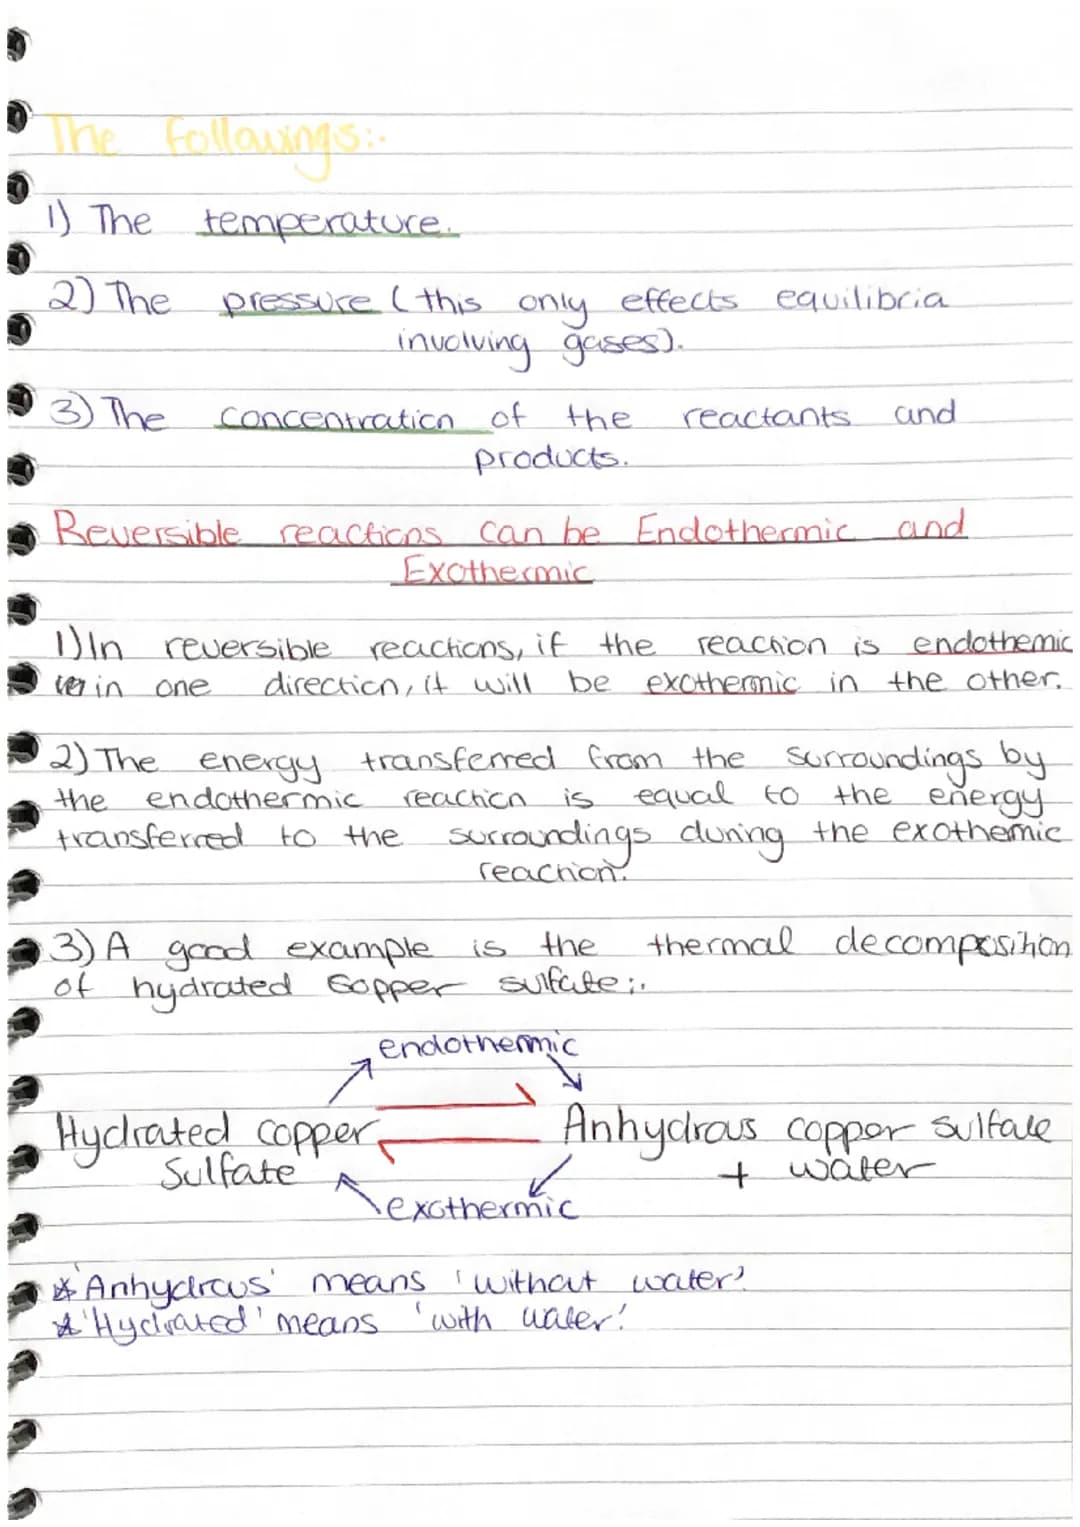 The followings:-
1) The temperature.
2) The pressure (this only effects equilibria
involving gases).
3) The concentration of the reactants and
products.
Reversible reactions can be Endothermic and
Exothermic
1) In reversible reactions, if the reaction is endothemic
in one direction, it will be exothermic in the other.
2) The energy transferred from the surroundings by
the endothermic reaction is equal to the energy
transferred to the surroundings during the exothemic
reaction.
3) A good example is the thermal decomposition
of hydrated Copper sulfate;.
endothermic
Hydrated copper Anhydrous copper sulfate
Sulfate + water
exothermic
* 'Anhydrous' means 'without water'.
* 'Hydrated' means 'with water'.